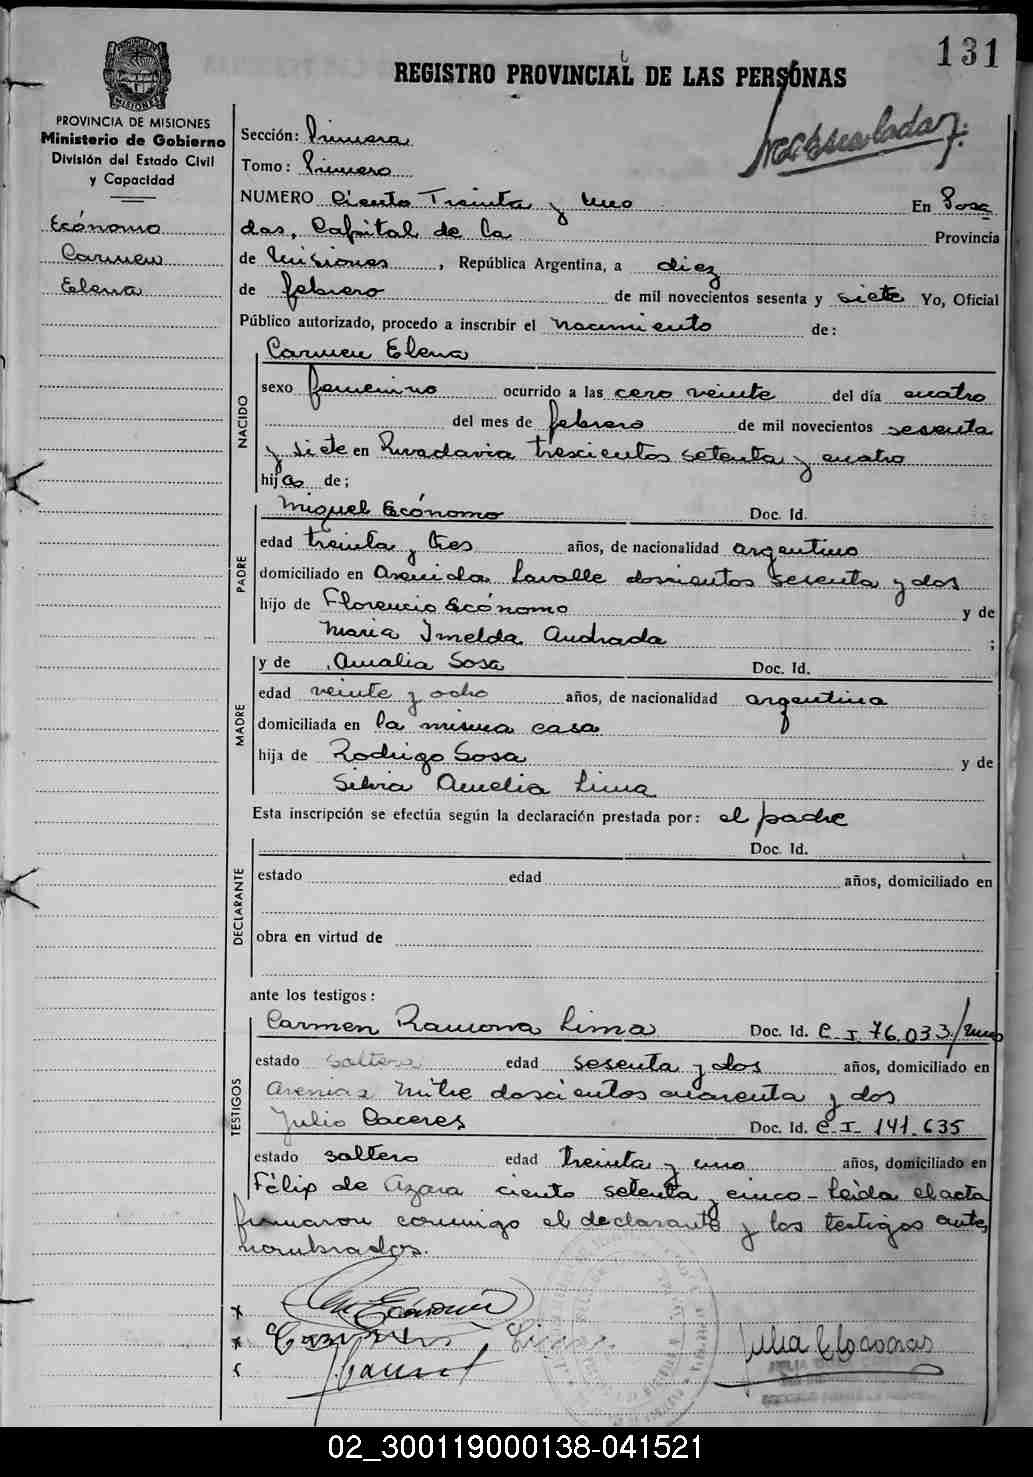 131
REGISTRO PROVINCIAL DE LAS PERSONAS
PROVINCIA DE MISIONES
Ministerio de Gobierno
División del Estado Civil
y Capacidad
Ecónomo
Carmen
Elena
Sección: Primera
Tomo: Primero
NUMERO Ciento Treinta y uno En Posa
das, Capital de la Provincia
de Misiones, República Argentina, a diez
de febrero de mil novecientos sesenta y siete Yo, Oficial
Público autorizado, procedo a inscribir el nacimiento de:
NACIDO
Carmen Elena
sexo femenino ocurrido a las cero veinte del día cuatro
del mes de febrero de mil novecientos sesenta
y siete en Rivadavia trescientos setenta y cuatro
hija de;
PADRE
Miguel Ecónomo Doc. Id.
edad treinta y tres años, de nacionalidad argentino
domiciliado en Avenida Lavalle doscientos sesenta y dos
hijo de Florencio Ecónomo y de
Maria Imelda Andrada ;
MADRE
y de Amalia Sosa Doc. Id.
edad veinte y ocho años, de nacionalidad argentina
domiciliada en la misma casa
hija de Rodrigo Sosa y de
Silvia Amelia Lima
Esta inscripción se efectúa según la declaración prestada por: el padre
DECLARANTE
Doc. Id.
estado edad años, domiciliado en
obra en virtud de
ante los testigos:
TESTIGOS
Carmen Ramona Lima Doc. Id. C.I. 76.033/
estado soltera edad sesenta y dos años, domiciliado en
Avenida Mitre doscientos cuarenta y dos
Julio Caceres Doc. Id. C.I. 141.635
estado soltero edad treinta y uno años, domiciliado en
Félix de Azara ciento setenta y cinco - leída el acta
firmaron conmigo el declarante y los testigos ante
nombrados.
02_300119000138-041521